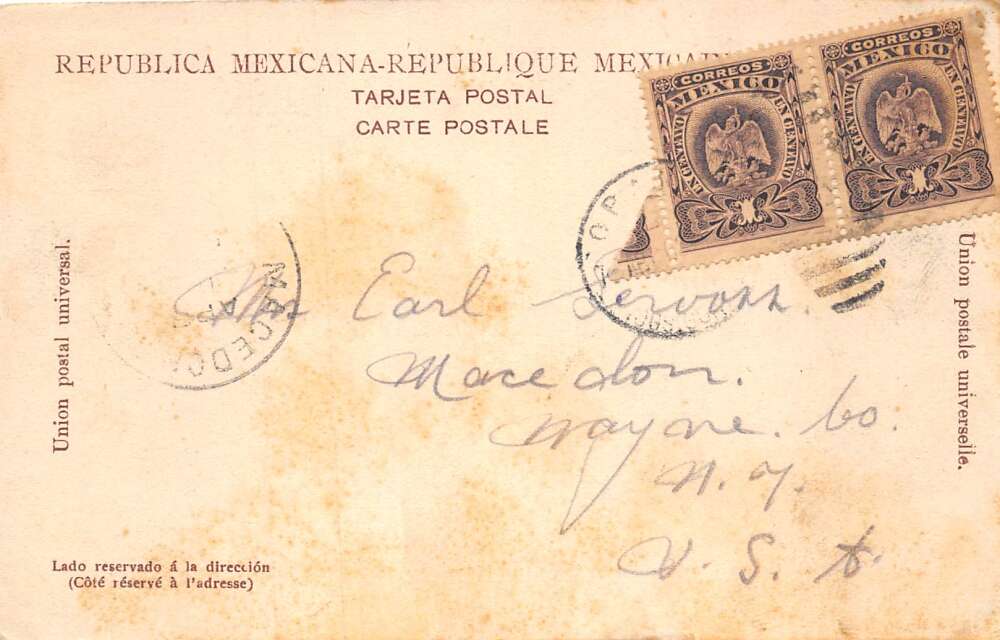 REPUBLICA MEXICANA-RÉPUBLIQUE
TARJETA POSTAL
CARTE POSTALE
CORREOS
MEXICO
UN CENTAVO
UN CENTAVO
CORREOS
MEXICO
UN CENTAVO
UN CENTAVO
Union postal universal.
Union postale universelle.
MACEDO
Earl
Macedon.
Wayne. Co.
N. Y.
U. S. A.
Lado reservado á la dirección
(Côté réservé à l'adresse)